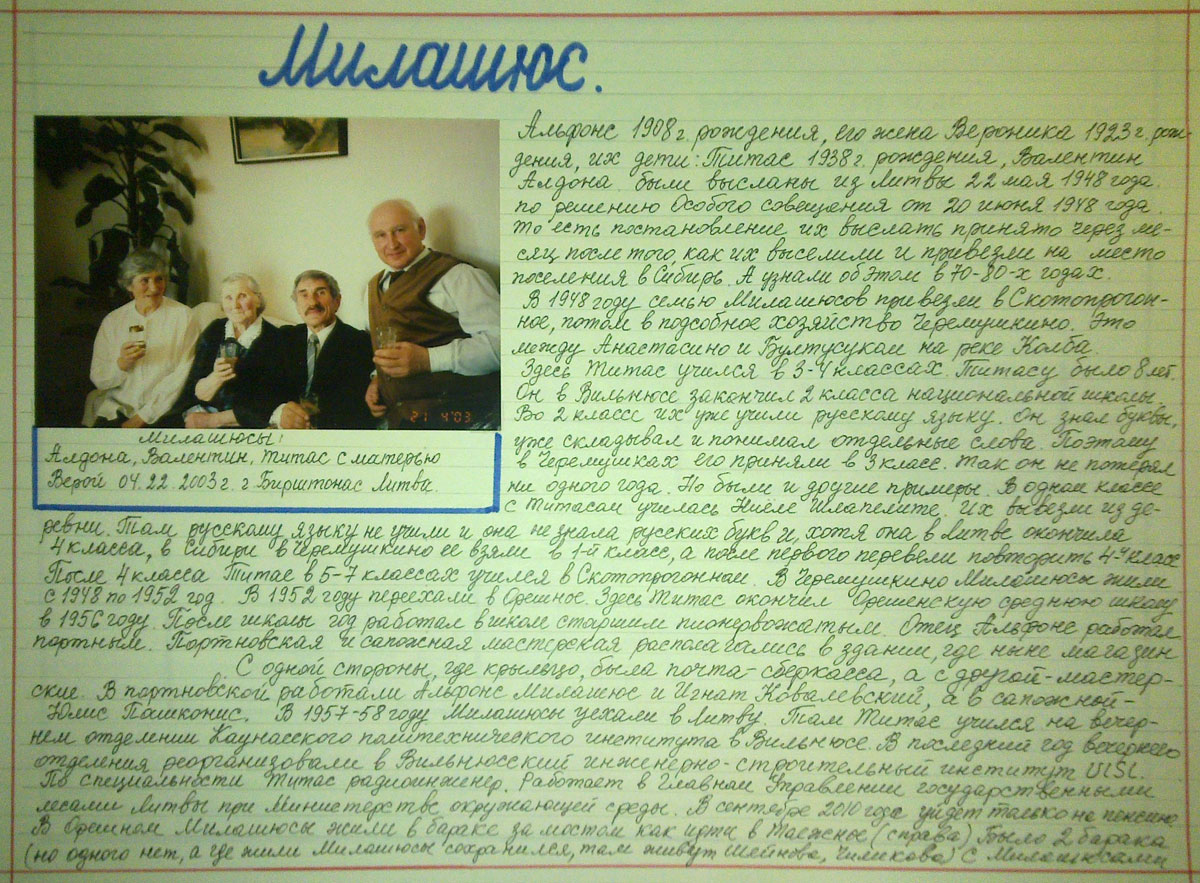 Милашюс.
Альфонс 1908 г. рождения, его жена Вероника 1923 г. рож-
дения, их дети: Титас 1938 г. рождения, Валентин
Алдона были высланы из Литвы 22 мая 1948 года.
по решению Особого совещания от 20 июня 1948 года.
То есть постановление их выслать принято через ме-
сяц после того, как их выселили и привезли на место
поселения в Сибирь. А узнали об этом в 70-80-х годах.
В 1948 году семью Милашюсов привезли в Скотопрогон-
ное, потом в подсобное хозяйство Черемушкино. Это
между Анастасино и Бултусукам на реке Колба.
Здесь Титас учился в 3-4 классах. Титасу было 8 лет.
Он в Вильнюсе закончил 2 класса национальной школы.
Во 2 классе их уже учили русскому языку. Он знал буквы,
уже складывал и понимал отдельные слова. Поэтому
в Черемушках его приняли в 3 класс. Так он не потерял
ни одного года. Но были и другие примеры. В одном классе
с Титасам училась Ниёле Шлапелите. Их вывезли из де-
21 4'03
Милашюсы:
Алдона, Валентин, Титас с матерью
Верой 04.22.2003 г. г Бирштонас Литва.
ревни. Там русскому языку не учили и она не знала русских букв и, хотя она в Литве окончила
4 класса, в Сибири в Черемушкино ее взяли в 1-й класс, а после первого перевели повторить 4-й класс
После 4 класса Титас в 5-7 классах учился в Скотопрогонном. В Черемушкино Милашюсы жили
с 1948 по 1952 год. В 1952 году переехали в Орешное. Здесь Титас окончил Орешенскую среднюю школу
в 1956 году. После школы год работал в школе старшим пионервожатым. Отец Альфонс работал
портным. Портновская и сапожная мастерская располагались в здании, где ныне магазин
С одной стороны, где крыльцо, была почта-сберкасса, а с другой-мастер-
ские. В портновской работали Альфонс Милашюс и Игнат Ковалевский, а в сапожной-
Юлис Пашконис. В 1957-58 году Милашюсы уехали в Литву. Там Титас учился на вечер-
нем отделении Каунасского политехнического института в Вильнюсе. В последний год вечернего
отделения реорганизовали в Вильнюсский инженерно-строительный институт VISI.
По специальности Титас радиоинженер. Работает в Главном Управлении государственными
лесами Литвы при Министерстве окружающей среды. В сентябре 2010 года уйдет только на пенсию
В Орешном Милашюсы жили в бараке за мостом как идти в Таежное (справа). Было 2 барака
(но одного нет, а где жили Милашюсы сохранился, там живут Шейнова, Чиликова) С Милашюсами